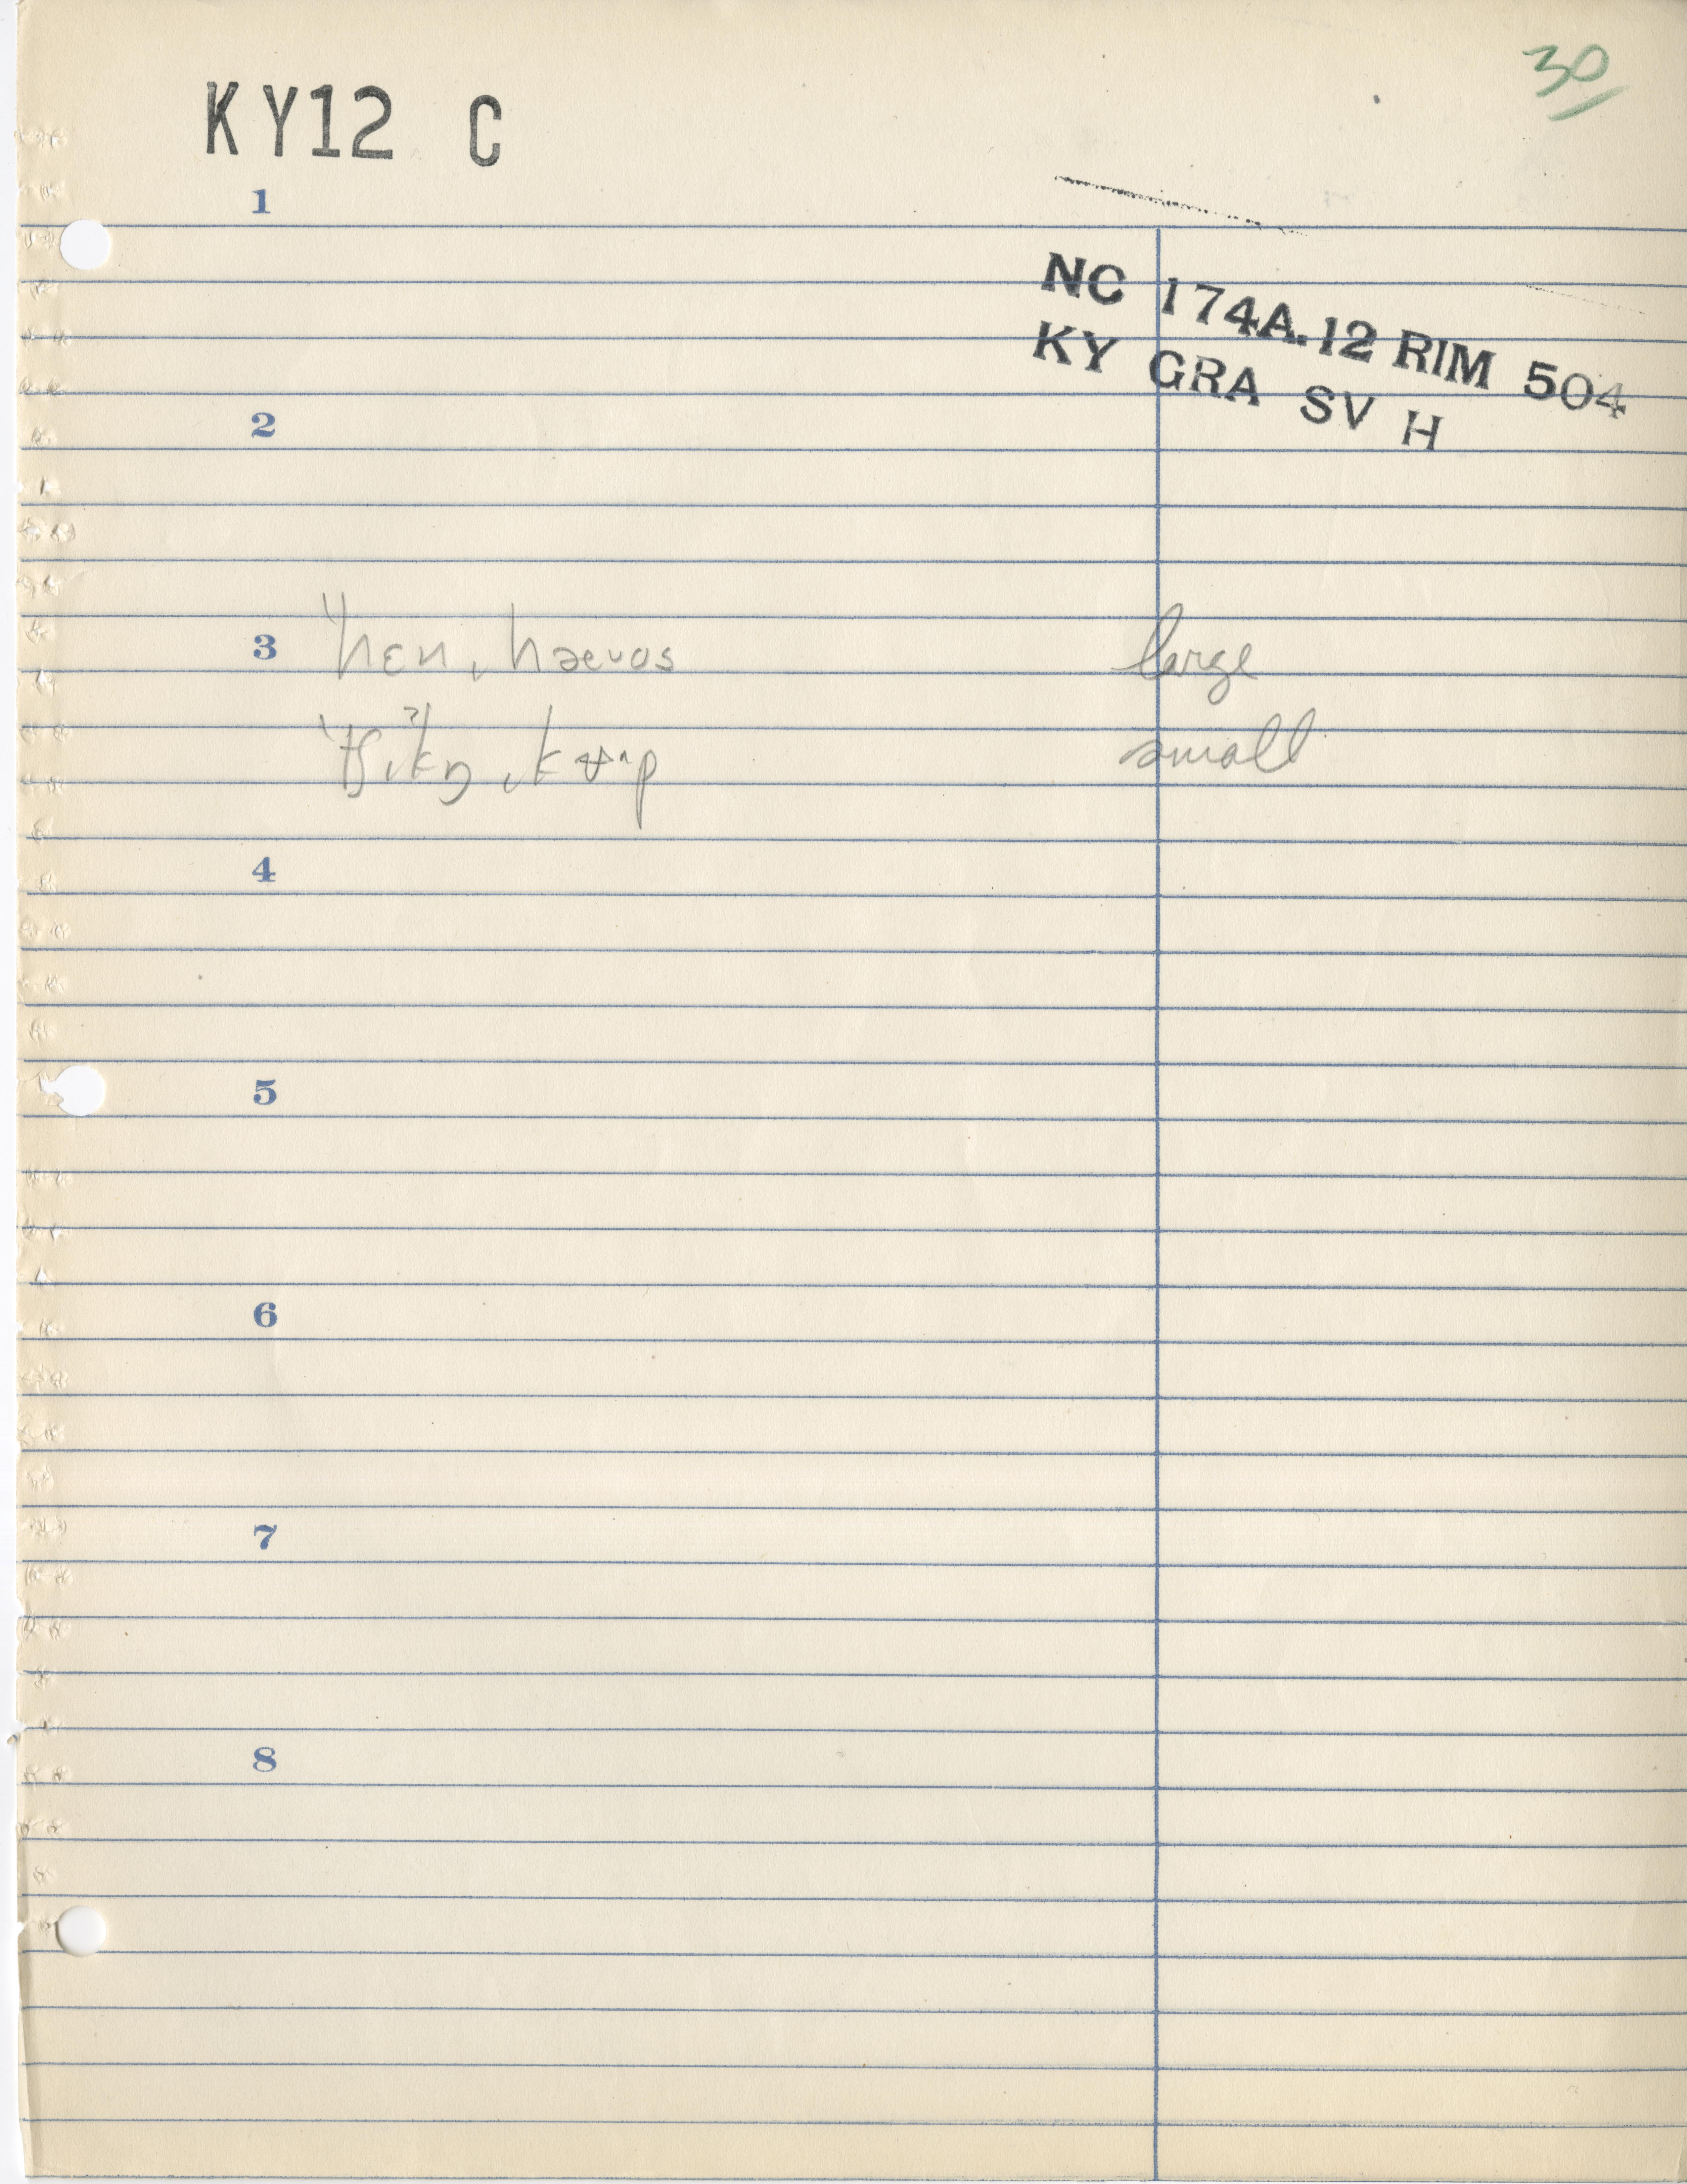 30
KY12 C
1
NC 174A.12 RIM 504
KY GRA SV H
2
3 large
small
4
5
6
7
8